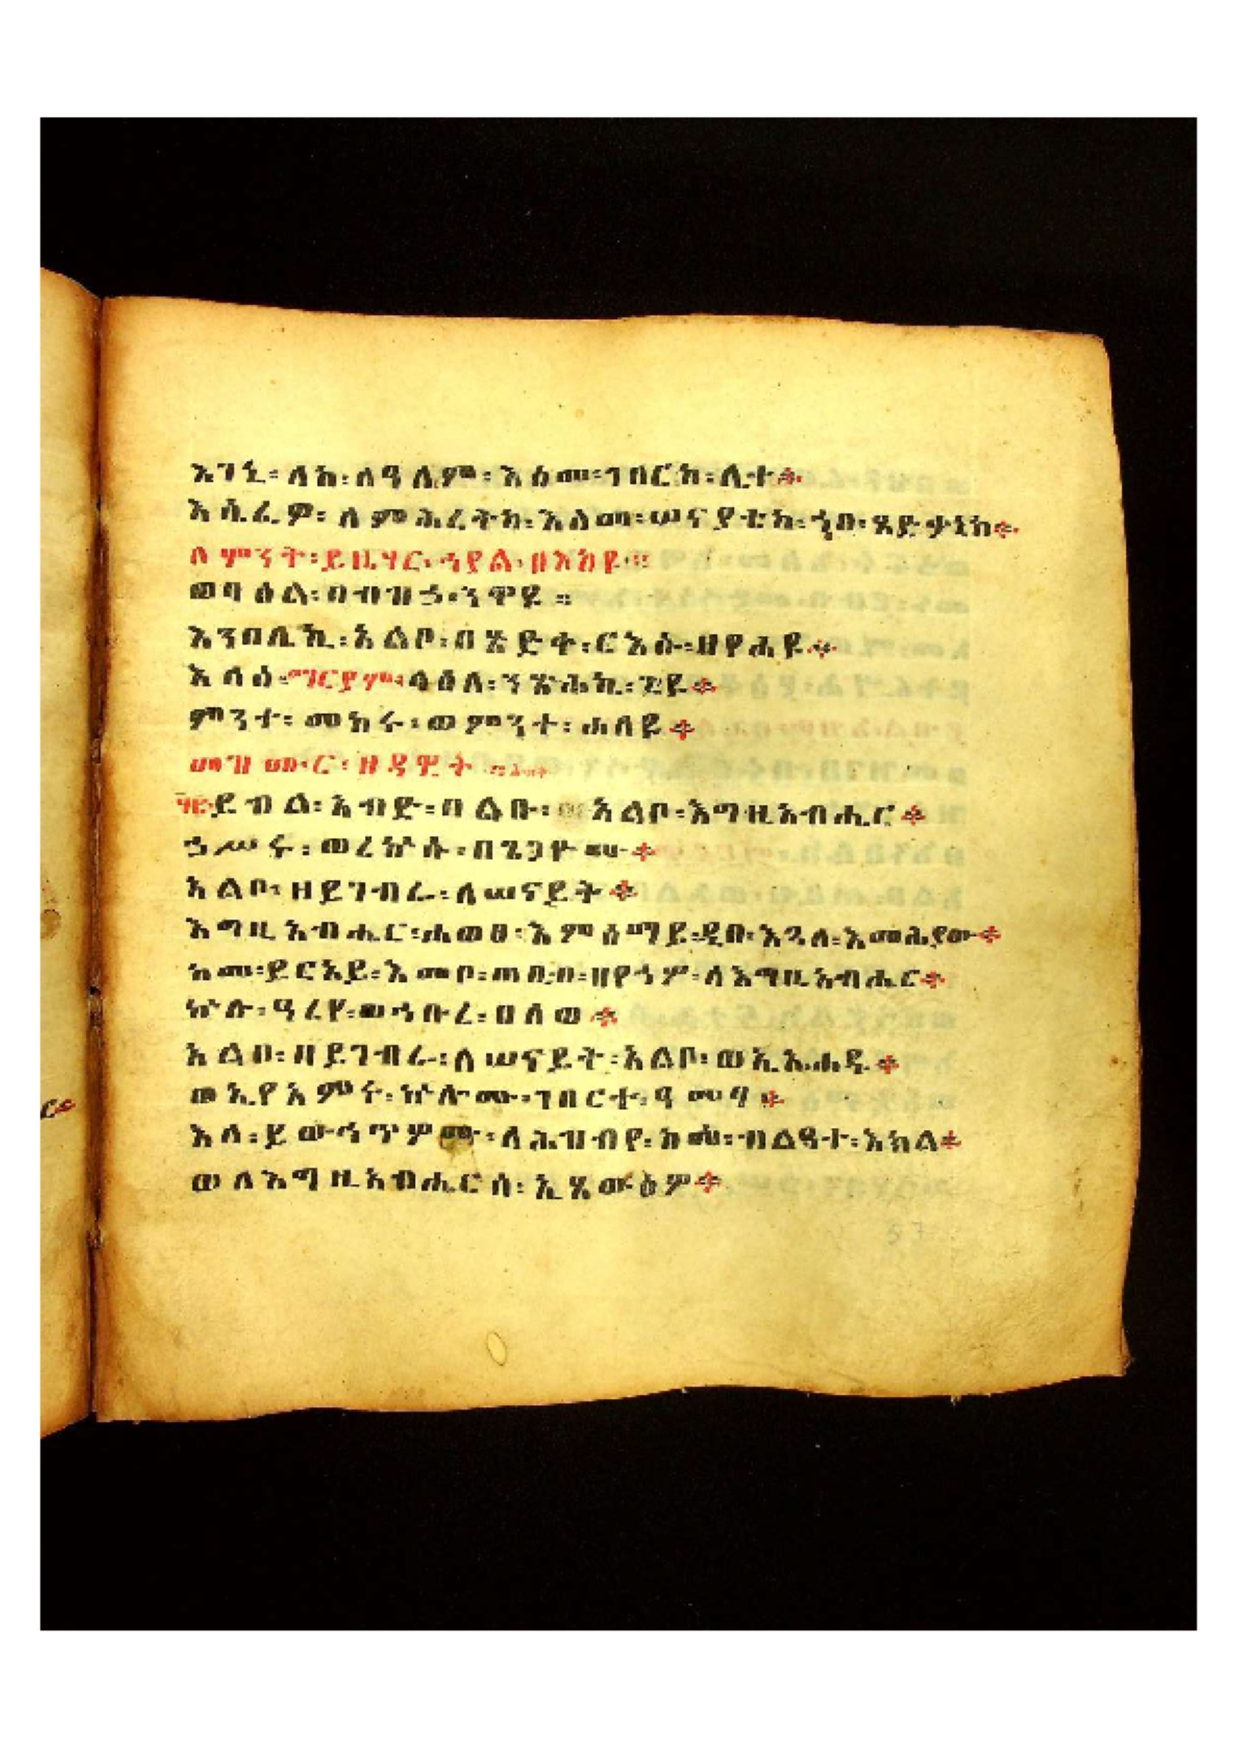 እገኒ፡ለከ፡ለዓለም፡እስመ፡ገበርከ፡ሊተ።
እሴፈዎ፡ለምሕረትከ፡እስመ፡ሠናያቲከ፡ኀበ፡ጻድቃኒከ።
ለምንት፡ይዜሃር፡ኀያል፡በእከዩ።
ወባዕል፡በብዝኃ፡ንዋዩ።
እንበለኪ፡አልቦ፡በጽድቀ፡ርእሱ፡ዘየሐዩ።
እለዕ፡ማርያም፡ላዕለ፡ንጽሕኪ፡
ምንተ፡መከሩ፡ወምንተ፡ሐለዩ።
መዝሙር፡ዘዳዊት
ይብል፡አብድ፡በልቡ፡አልቦ፡እግዚአብሔር።
ኃሠሩ፡ወረኵሱ፡በጌጋዮሙ።
አልቦ፡ዘይገብራ፡ለሠናይት።
እግዚአብሔር፡ሐወፀ፡እምሰማይ፡ዲበ፡እጓለ፡እመሕያው።
ከመ፡ይርአይ፡እመቦ፡ጠቢበ፡ዘየኀሦ፡ለእግዚአብሔር።
ኵሉ፡ዓረየ፡ወኀቡረ፡ዐለወ።
አልቦ፡ዘይገብራ፡ለሠናይት፡አልቦ፡ወኢአሐዱ።
ወኢየአምሩ፡ኵሎሙ፡ገበርተ፡ዓመፃ።
እለ፡ይውኅጥዎሙ፡ለሕዝብየ፡ከመ፡በልዓተ፡እክል።
ወለእግዚአብሔርሰ፡ኢጸውዕዎ።
57